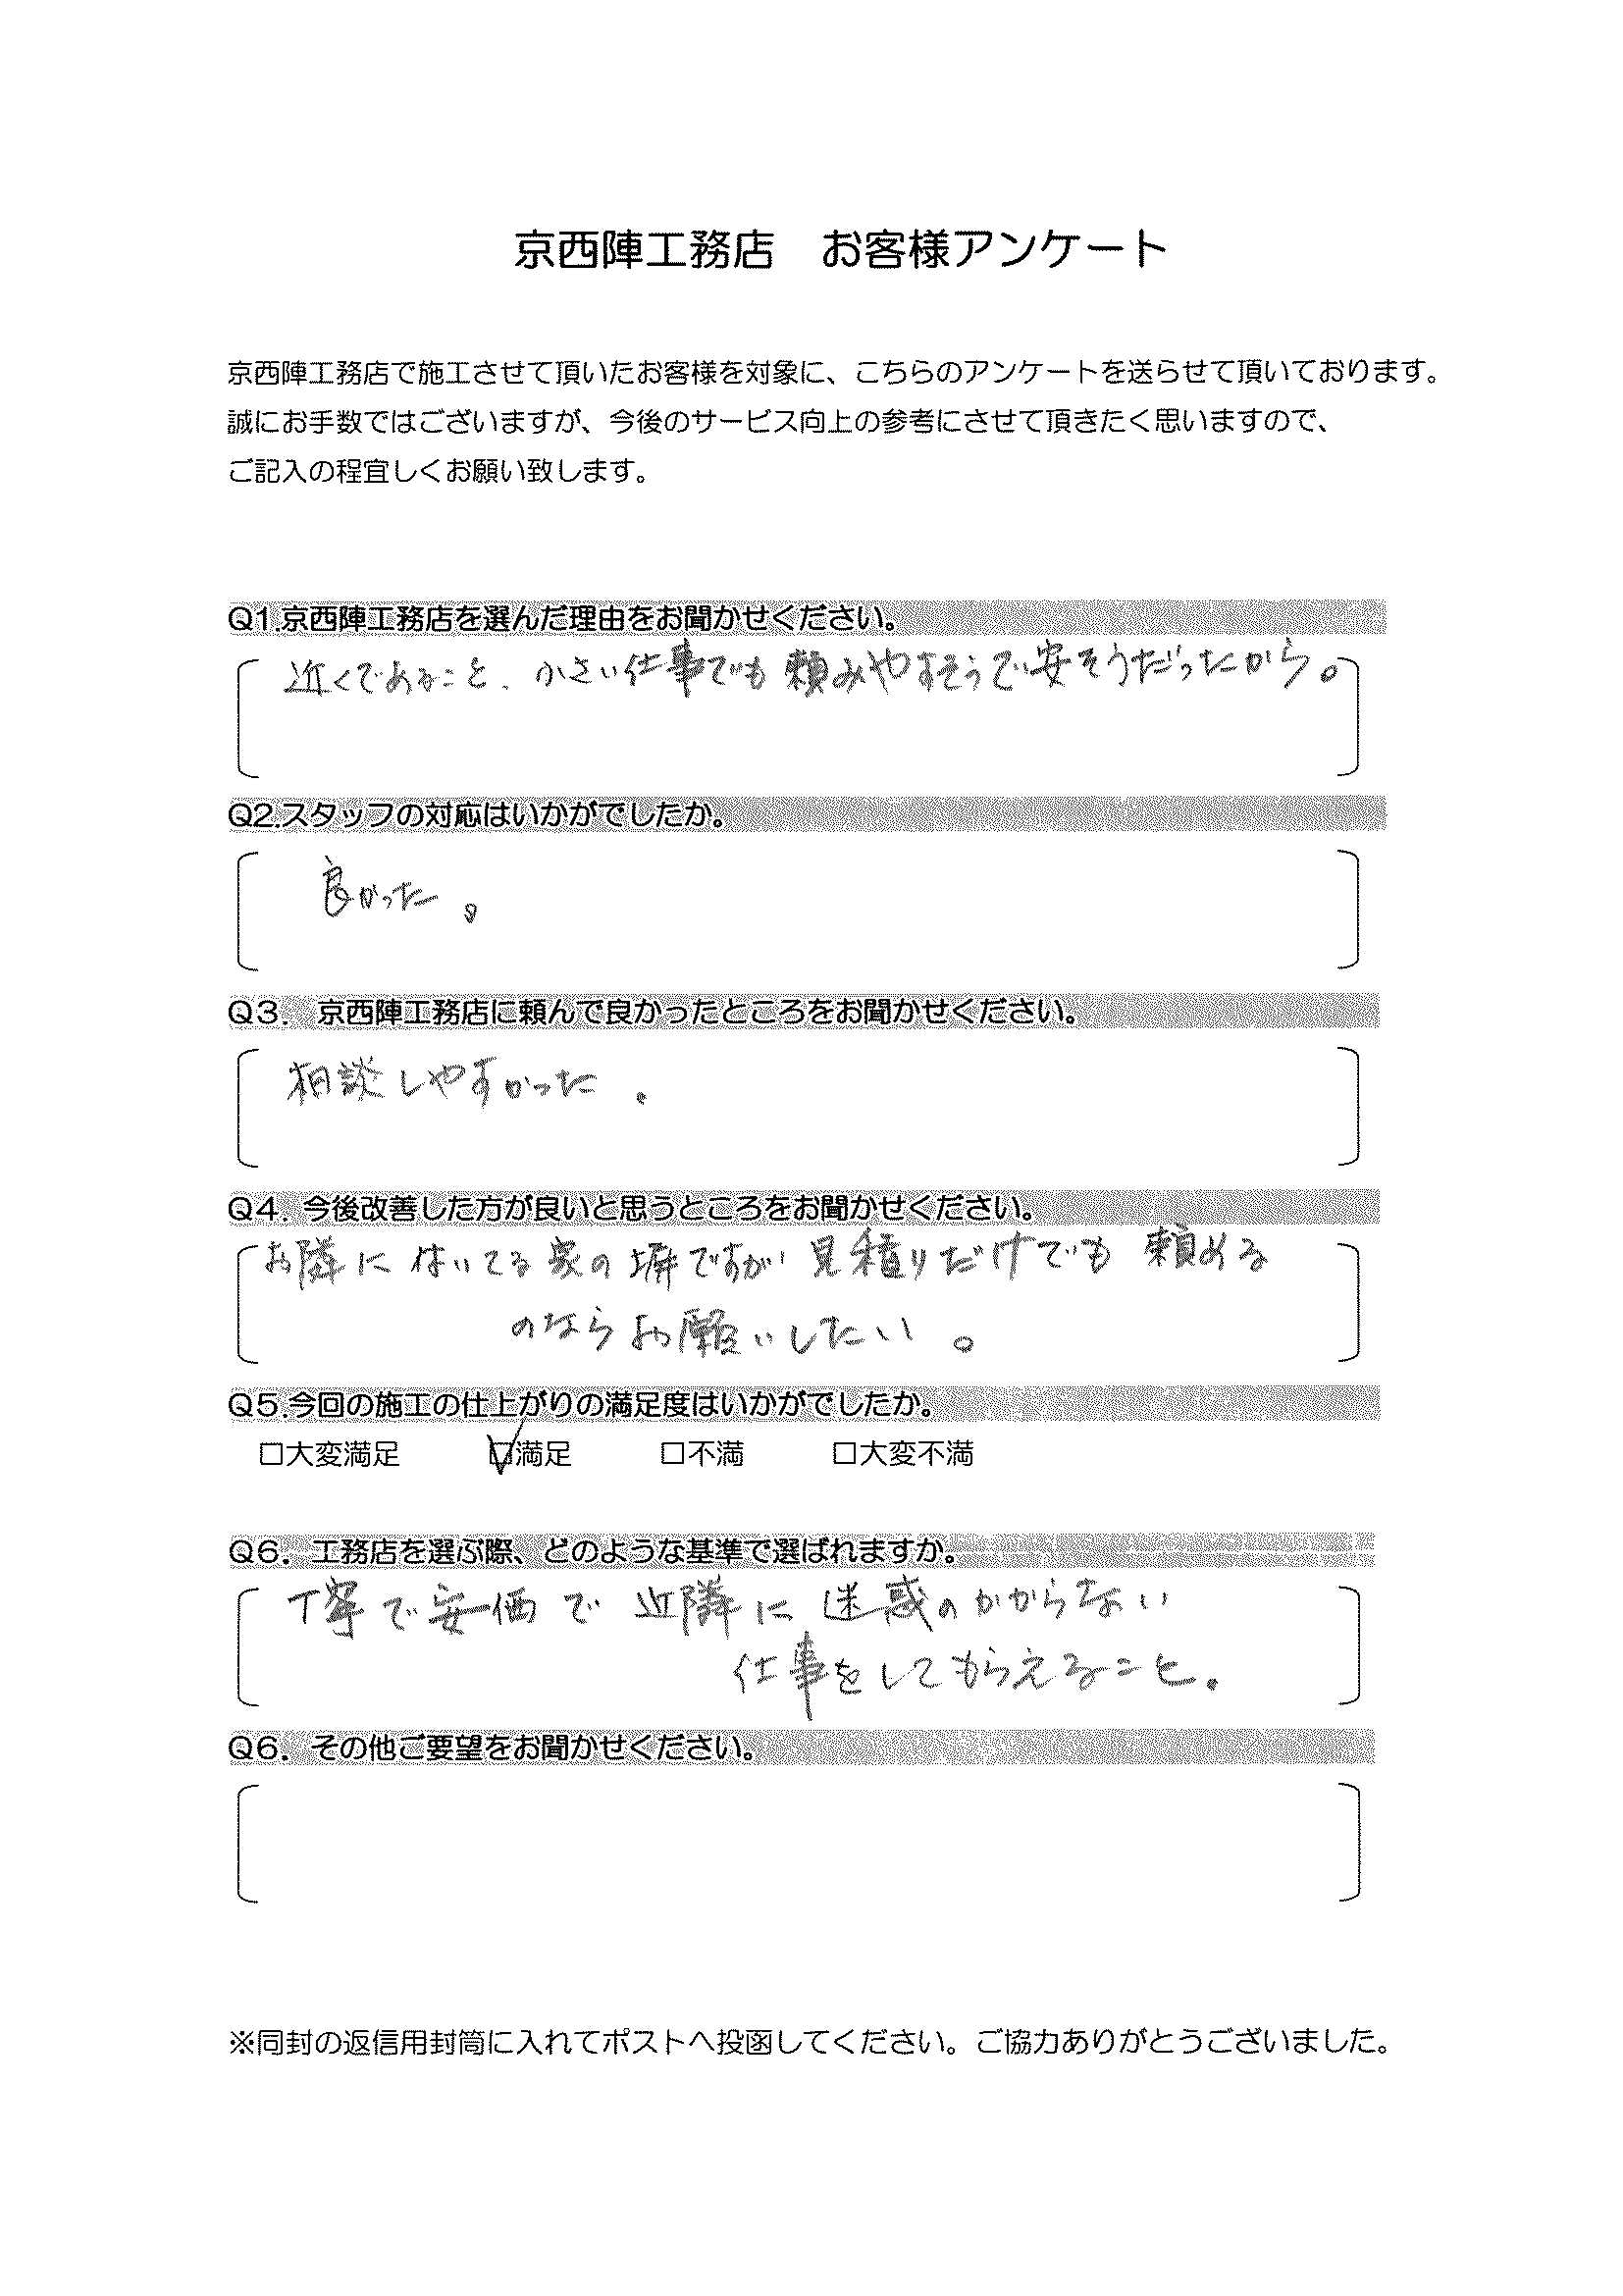 京西陣工務店　お客様アンケート
京西陣工務店で施工させて頂いたお客様を対象に、こちらのアンケートを送らせて頂いております。
誠にお手数ではございますが、今後のサービス向上の参考にさせて頂きたく思いますので、
ご記入の程宜しくお願い致します。
Q1.京西陣工務店を選んだ理由をお聞かせください。
近くであること、小さい仕事でも頼みやすそうで安そうだったから。
Q2.スタッフの対応はいかがでしたか。
良かった。
Q3.　京西陣工務店に頼んで良かったところをお聞かせください。
相談しやすかった。
Q4. 今後改善した方が良いと思うところをお聞かせください。
お隣に付いてる家の塀ですが見積りだけでも頼める
のならお願いしたい。
Q5.今回の施工の仕上がりの満足度はいかがでしたか。
□大変満足　☑満足　□不満　□大変不満
Q6. 工務店を選ぶ際、どのような基準で選ばれますか。
丁寧で安価で近隣に迷惑のかからない
仕事をしてもらえること。
Q6. その他ご要望をお聞かせください。
※同封の返信用封筒に入れてポストへ投函してください。ご協力ありがとうございました。